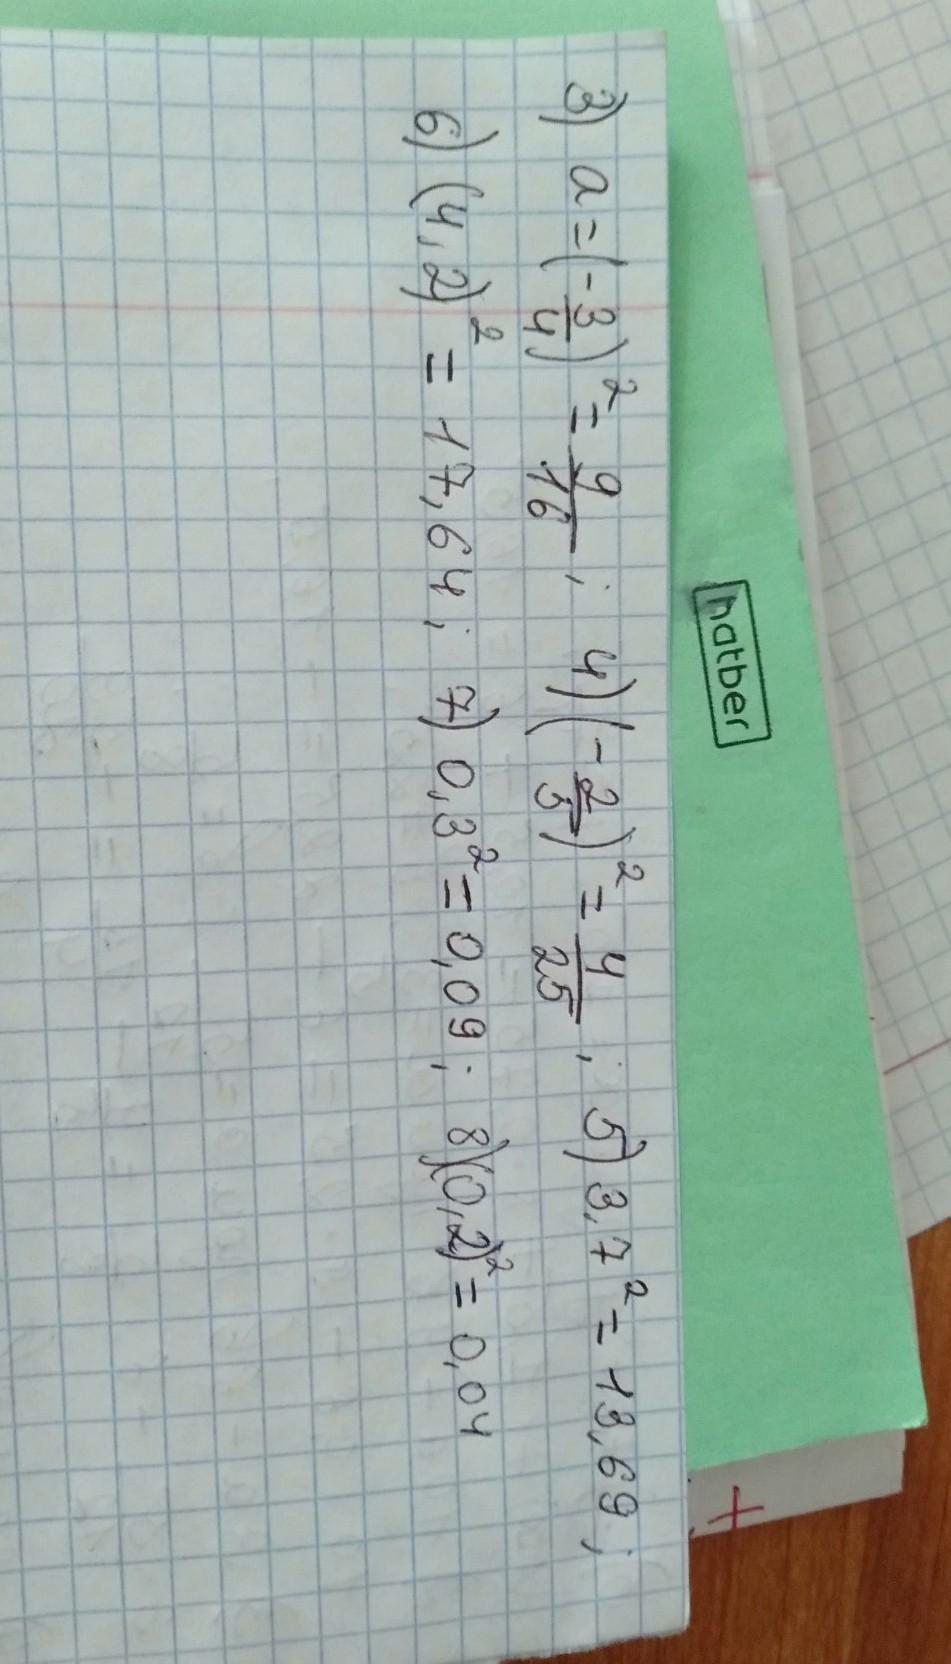 hatber
3) a = (-3/4)² = 9/16; 4) (-2/5)² = 4/25; 5) 3,7² = 13,69;
6) (4,2)² = 17,64; 7) 0,3² = 0,09; 8) (0,2)² = 0,04
+